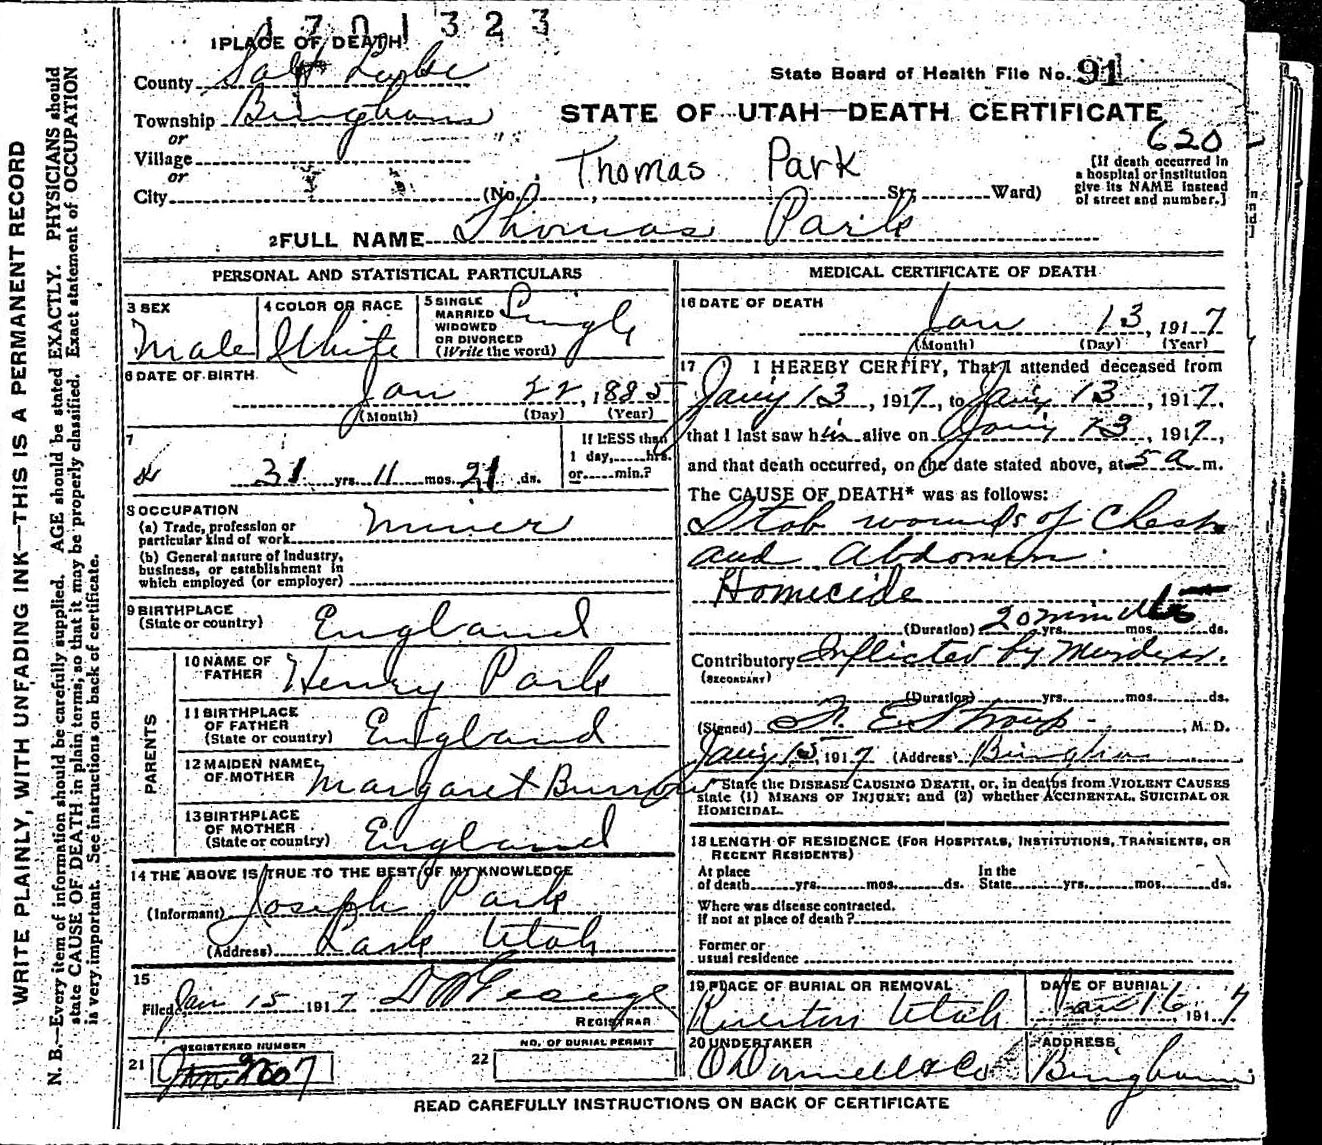 1701323
1 PLACE OF DEATH
County Salt Lake
State Board of Health File No. 91
Township Bingham
STATE OF UTAH—DEATH CERTIFICATE
or
620
Village
Thomas Park
[If death occurred in
a hospital or institution
give its NAME instead
of street and number.]
or
City (No. St; Ward)
2 FULL NAME Thomas Park
PERSONAL AND STATISTICAL PARTICULARS
3 SEX
Male
4 COLOR OR RACE
White
5 SINGLE
MARRIED
WIDOWED
OR DIVORCED
(Write the word)
Single
6 DATE OF BIRTH
Jan 22, 1885
(Month) (Day) (Year)
7
31 yrs. 11 mos. 21 ds.
If LESS than
1 day, hrs.
or min.?
8 OCCUPATION
(a) Trade, profession or
particular kind of work Miner
(b) General nature of Industry,
business, or establishment in
which employed (or employer)
9 BIRTHPLACE
(State or country) England
PARENTS
10 NAME OF
FATHER Henry Park
11 BIRTHPLACE
OF FATHER
(State or country) England
12 MAIDEN NAME
OF MOTHER Margaret Burrow
13 BIRTHPLACE
OF MOTHER
(State or country) England
14 THE ABOVE IS TRUE TO THE BEST OF MY KNOWLEDGE
(Informant) Joseph Park
(Address) Lark Utah
15
Filed Jan 15 1917
REGISTRAR
21 REGISTERED NUMBER
7
22 NO. OF BURIAL PERMIT
MEDICAL CERTIFICATE OF DEATH
16 DATE OF DEATH
Jan 13, 1917
(Month) (Day) (Year)
17 I HEREBY CERTIFY, That I attended deceased from
Jany 13, 1917, to Jany 13, 1917,
that I last saw him alive on Jany 13, 1917,
and that death occurred, on the date stated above, at 5 a m.
The CAUSE OF DEATH* was as follows:
Stab wounds of Chest
and Abdomen.
Homicide
(Duration) 20 minutes yrs. mos. ds.
Contributory Inflicted by Murderer.
(SECONDARY)
(Duration) yrs. mos. ds.
(Signed) F. E. Straup, M. D.
Jany 15, 1917 (Address) Bingham
*State the DISEASE CAUSING DEATH, or, in deaths from VIOLENT CAUSES
state (1) MEANS OF INJURY; and (2) whether ACCIDENTAL, SUICIDAL OR
HOMICIDAL.
18 LENGTH OF RESIDENCE (FOR HOSPITALS, INSTITUTIONS, TRANSIENTS, OR
RECENT RESIDENTS)
At place
of death yrs. mos. ds.
In the
State yrs. mos. ds.
Where was disease contracted,
if not at place of death?
Former or
usual residence
19 PLACE OF BURIAL OR REMOVAL
Riverton Utah
DATE OF BURIAL
Jan 16 1917
20 UNDERTAKER
O'Donnell & Co
ADDRESS
Bingham
READ CAREFULLY INSTRUCTIONS ON BACK OF CERTIFICATE
WRITE PLAINLY, WITH UNFADING INK—THIS IS A PERMANENT RECORD
N. B.—Every item of information should be carefully supplied. AGE should be stated EXACTLY. PHYSICIANS should
state CAUSE OF DEATH in plain terms, so that it may be properly classified. Exact statement of OCCUPATION
is very important. See instructions on back of certificate.